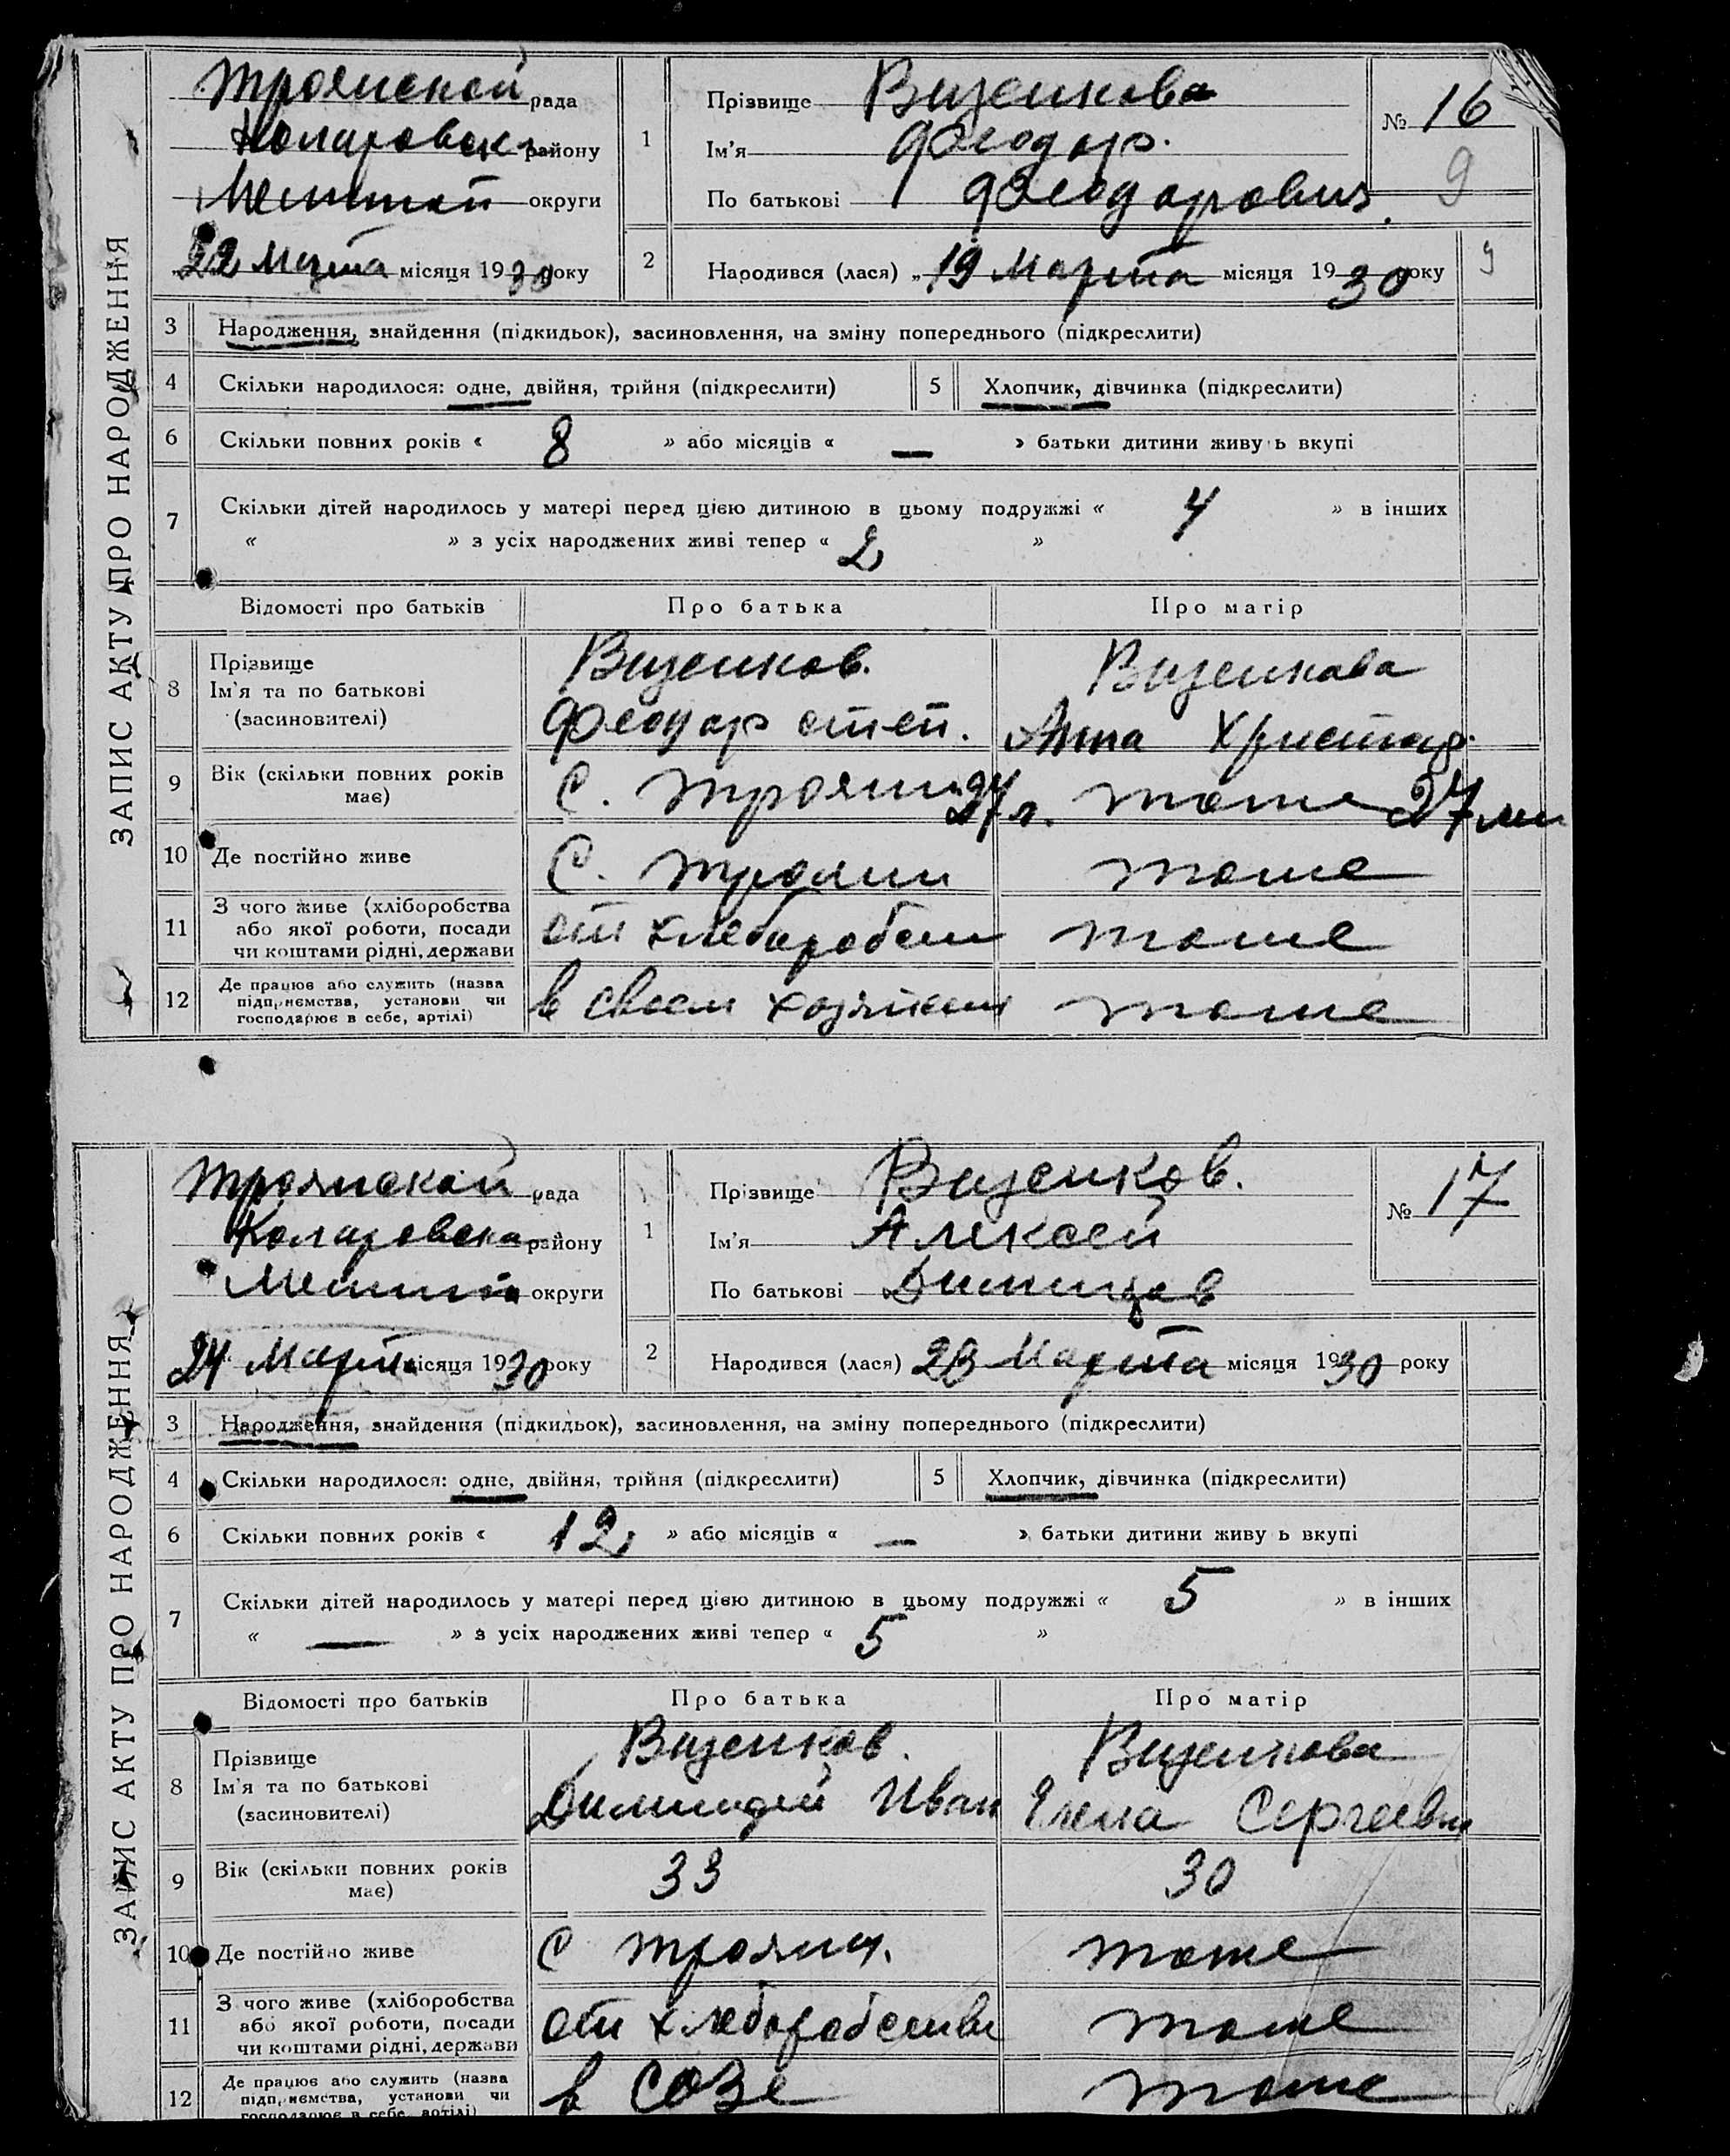 ЗАПИС АКТУ ПРО НАРОДЖЕННЯ
Троянской рада
Коларовск району
округи
22 Марта місяця 1930 року
1
Прізвище Визенкова
Ім'я Феодор.
По батькові Феодорович.
№ 16
9
2
Народився (лася) „19 Марта місяця 1930 року
9
3 Народження, знайдення (підкидьок), засиновлення, на зміну попереднього (підкреслити)
4 Скільки народилося: одне, двійня, трійня (підкреслити) 5 Хлопчик, дівчинка (підкреслити)
6 Скільки повних років « 8 » або місяців « — » батьки дитини живу ь вкупі
7 Скільки дітей народилось у матері перед цією дитиною в цьому подружжі « 4 » в інших
« » з усіх народжених живі тепер « 2 »
Відомості про батьків Про батька Про матір
8 Прізвище Визенков. Визенкова
Ім'я та по батькові
(засиновителі) Феодор степ. Анна Христоф.
9 Вік (скільки повних років має) С. Трояни 27 л. тоже 27 лет
10 Де постійно живе С. Трояни тоже
11 З чого живе (хліборобства або якої роботи, посади чи коштами рідні, держави от хлеборобст тоже
12 Де працює або служить (назва підприємства, установи чи господарює в себе, артілі) в своем хозяйст тоже
ЗАПИС АКТУ ПРО НАРОДЖЕННЯ
Троянской рада
Коларовска району
округи
24 Марта місяця 1930 року
1
Прізвище Визенков.
Ім'я Алексей
По батькові
№ 17
2
Народився (лася) 23 Марта місяця 1930 року
3 Народження, знайдення (підкидьок), засиновлення, на зміну попереднього (підкреслити)
4 Скільки народилося: одне, двійня, трійня (підкреслити) 5 Хлопчик, дівчинка (підкреслити)
6 Скільки повних років « 12 » або місяців « — » батьки дитини живу ь вкупі
7 Скільки дітей народилось у матері перед цією дитиною в цьому подружжі « 5 » в інших
« — » з усіх народжених живі тепер « 5 »
Відомості про батьків Про батька Про матір
8 Прізвище Визенков. Визенкова
Ім'я та по батькові
(засиновителі) Иван Елена Сергеевн
9 Вік (скільки повних років має) 33 30
10 Де постійно живе С Трояны. тоже
11 З чого живе (хліборобства або якої роботи, посади чи коштами рідні, держави от хлеборобства тоже
12 Де працює або служить (назва підприємства, установи чи господарює в себе, артілі) в СОЗе тоже